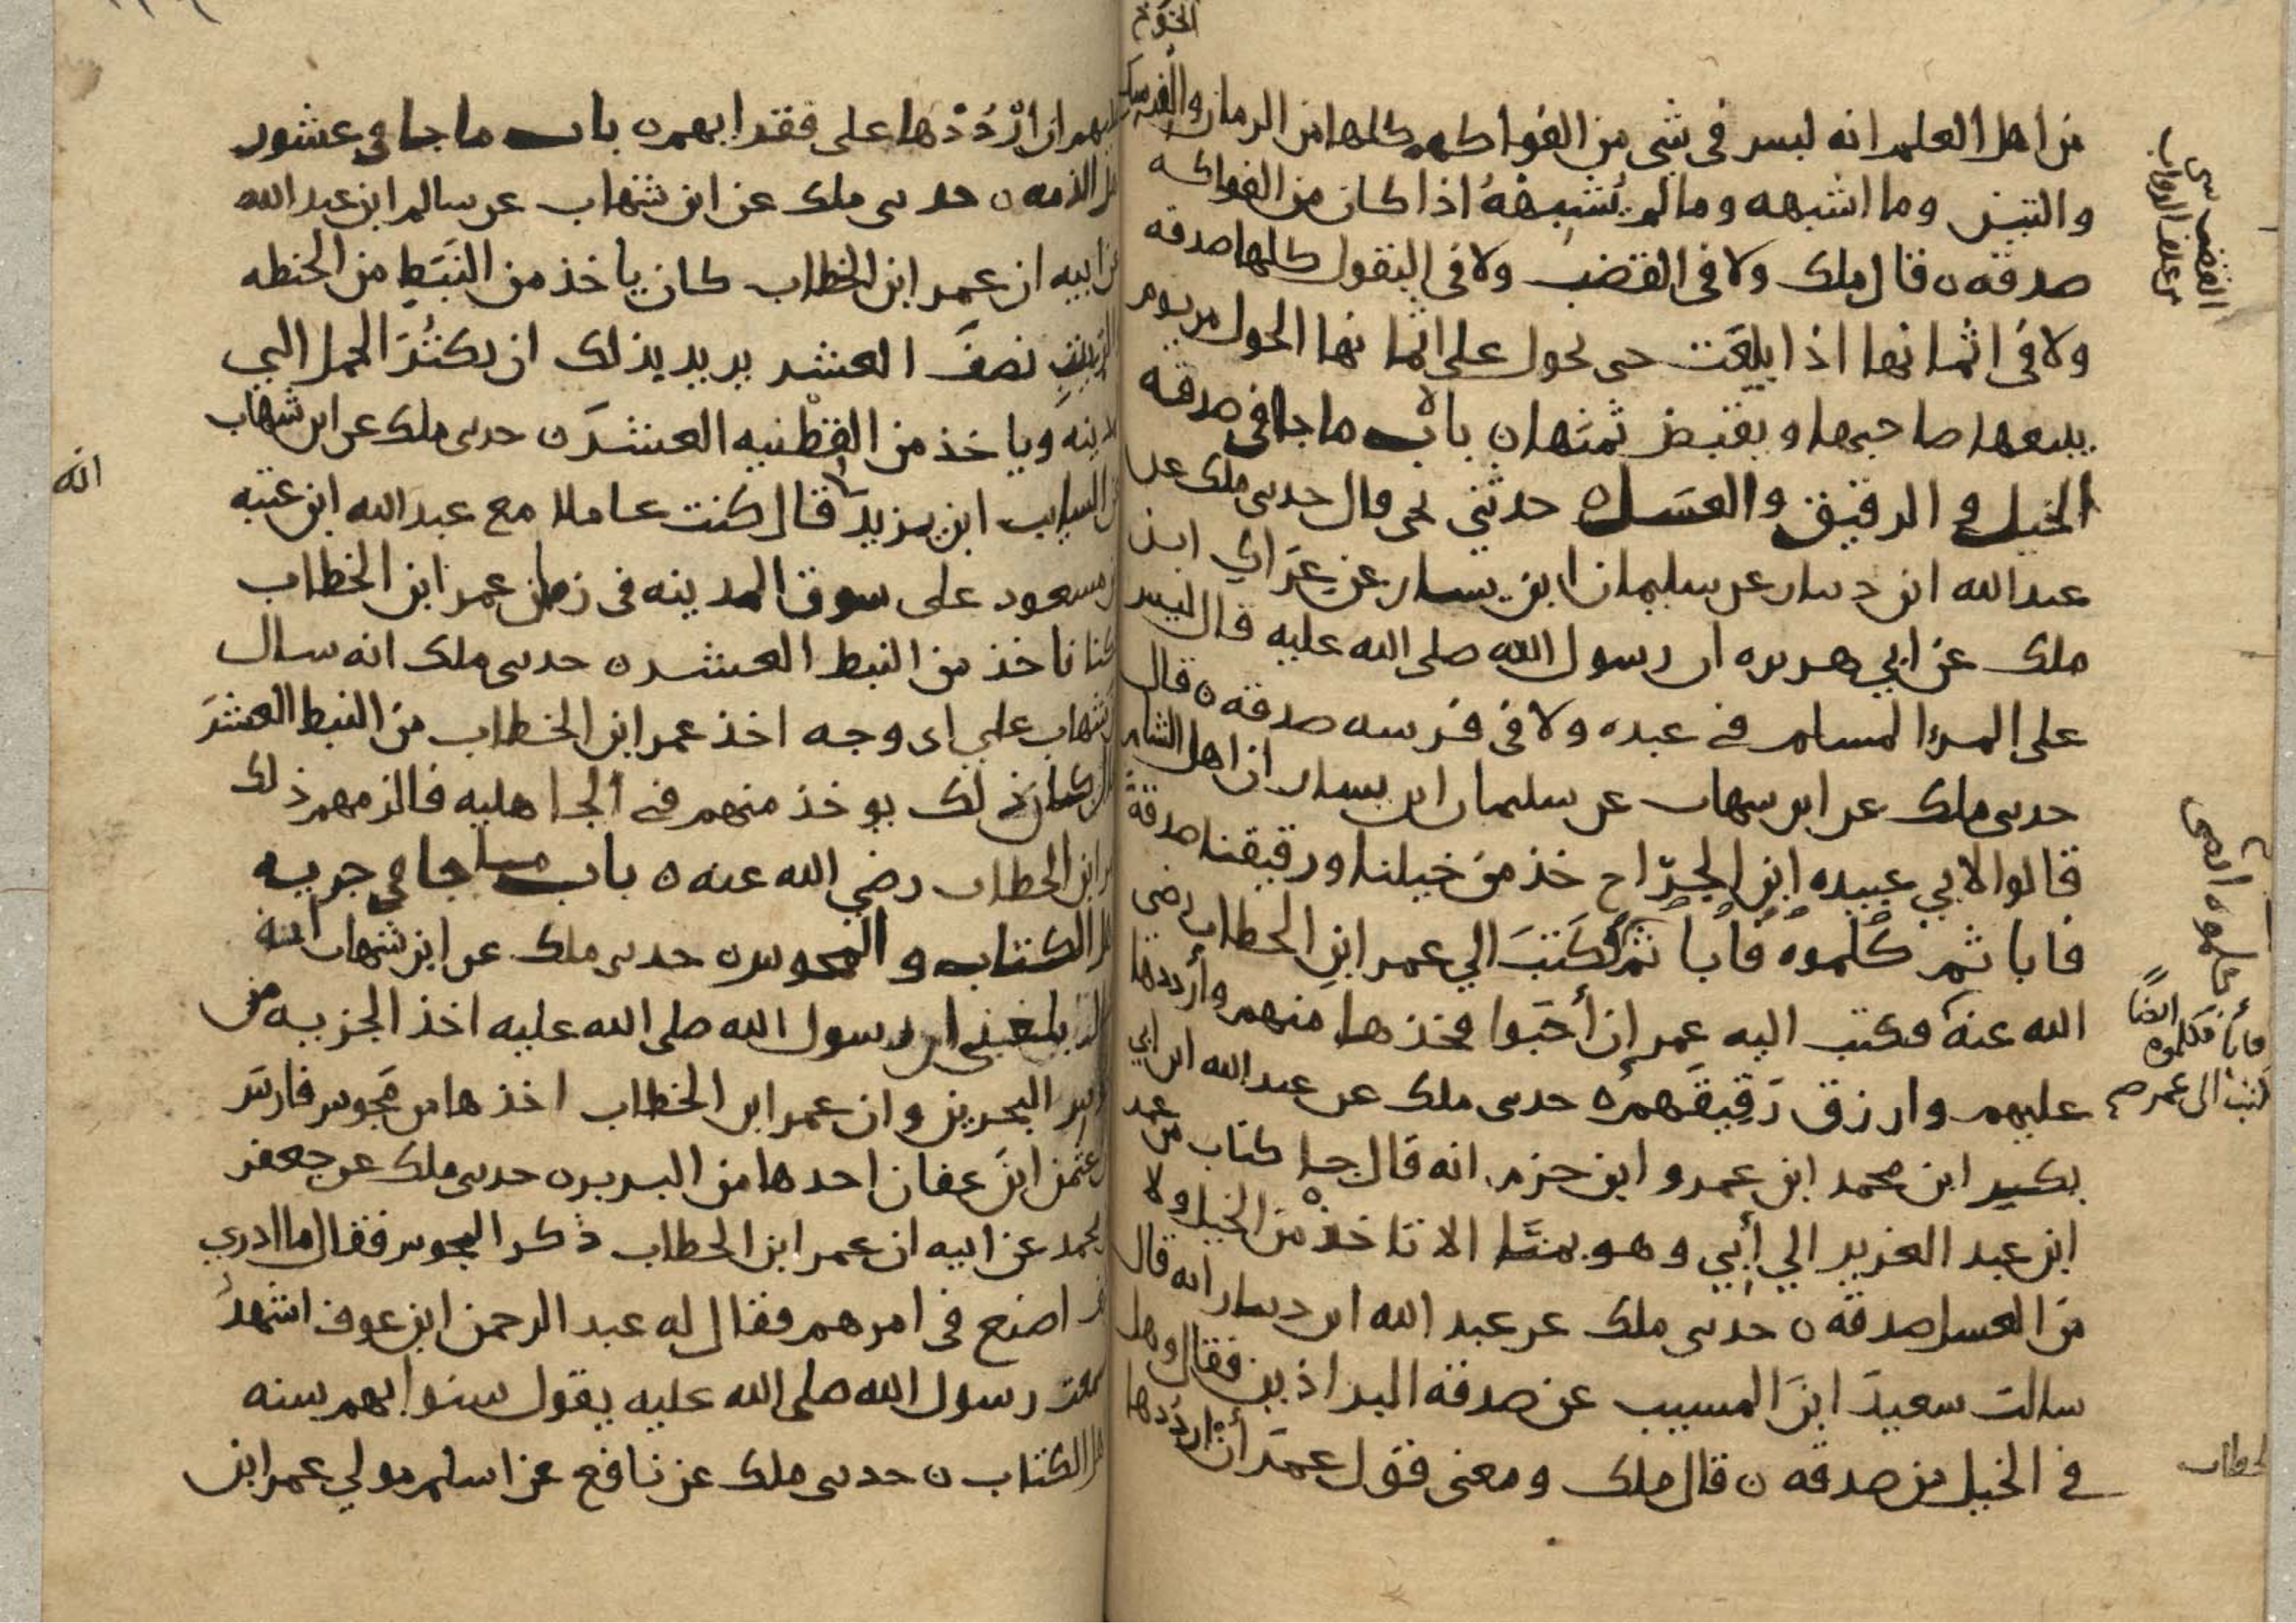 من اهل العلم انه ليس في شي من الفواكه كلها من الرمان والفرسك
والتين وما اشبهه وما لم يشبهه اذا كان من الفواكه
صدقه ٥ قال ملك ولا في القضب ولا في البقول كلها صدقه
ولا في اثمانها اذا بيعت حى يحول على اثمانها الحول من يوم
يبيعها صاحبها ويقبض ثمنها ٥ باب ماجا في صدقه
الخيل والرقيق والعسل ٥ حدثني يحى قال حدىى ملك عن
عبد الله ابن دينار عن سليمان ابن يسار عن عراك ابن
ملك عن ابي هريره ان رسول الله صلى الله عليه قال ليس
على المرء المسلم في عبده ولا في فرسه صدقه ٥ قال
حدىى ملك عن ابن شهاب عن سليمان ابن يسار ان اهل الشام
قالوا لابي عبيده ابن الجرّاح خذ من خيلنا ورقيقنا صدقة
فابا ثم كلموه فابا ثم كتب الي عمر ابن الخطاب رضي
الله عنه فكتب اليه عمر إن أحبوا فخذها منهم وأرددها
عليهم وارزق رقيقهم ٥ حدىى ملك عن عبد الله ابن ابي
بكر ابن محمد ابن عمرو ابن حزم انه قال جا كتاب من عمر
ابن عبد العزيز الي أبي وهو بمنًا الا تاخذ من الخيل ولا
من العسل صدقه ٥ حدىى ملك عن عبد الله ابن دينار انه قال
سالت سعيد ابن المسيب عن صدقه البراذين فقال وهل
في الخيل من صدقه ٥ قال ملك ومعنى قول عمر أن ارددها
الخوخ
القضب شى
من علف الدواب
ايضًا
فابا فكلموه
كتب الى عمر صح
عليهم ان ارْدُدْها على فقرايهم ٥ باب ماجا في عشور
اهل الذمه ٥ حدىى ملك عن ابن شهاب عن سالم ابن عبد الله
عن ابيه ان عمر ابن الخطاب كان ياخذ من النبَطِ من الحنطه
والزيتِ نصفَ العشر يريد بذلك ان يكثُرَ الحمل الي
المدينه وياخذ من القطنيه العشرَ ٥ حدىى ملك عن ابن شهاب
عن السايب ابن يزيد قال كنت عاملا مع عبد الله ابن عتبه
ابن مسعود على سوق المدينه في زمان عمر ابن الخطاب
كنا ناخذ من النبط العشر ٥ حدىى ملك انه سال
ابن شهاب علي اى وجه اخذ عمر ابن الخطاب من النبط العشرَ
كان ذلك يوخذ منهم في الجاهليه فالزمهم ذلك
عمر ابن الخطاب رضي الله عنه ٥ باب ماجا في جزيه
اهل الكتاب والمجوس ٥ حدىى ملك عن ابن شهاب انه
قال بلغني ان رسول الله صلى الله عليه اخذ الجزيه من
مجوس البحرين وان عمر ابن الخطاب اخذها من مجوس فارس
وان عثمن ابن عفان اخذها من البربر ٥ حدىى ملك عن جعفر
ابن محمد عن ابيه ان عمر ابن الخطاب ذكر المجوس فقال ما ادري
كيف اصنع في امرهم فقال له عبد الرحمن ابن عوف اشهدُ
لسمعت رسول الله صلى الله عليه يقول سنوا بهم سنه
اهل الكتاب ٥ حدىى ملك عن نافع عن اسلم مولي عمر ابن
انه
الخطاب